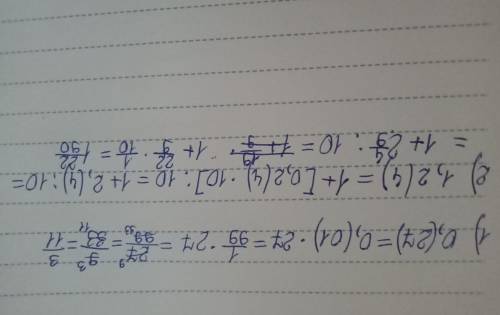 1) 0,(27)=0,(01)·27=1/99·27=27⁹/99₃₃=9³/33₁₁=3/11
2) 1,2(4)=1+[0,2(4)·10]:10=1+2,(4):10=
=1+2 4/9:10= 1+22/9·1/10=1 22/90